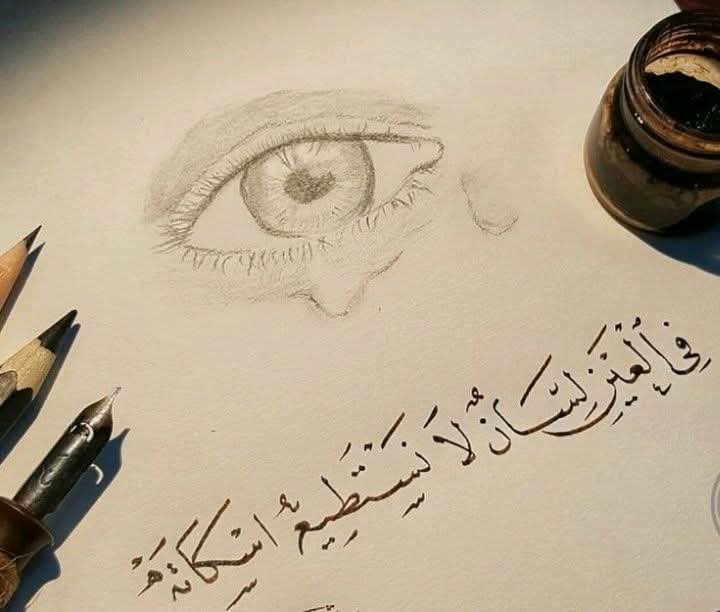 فِي إلْعَيْنِ لِسَانٌ لَا نَسْتَطِيعُ اسْكَاتَهُ